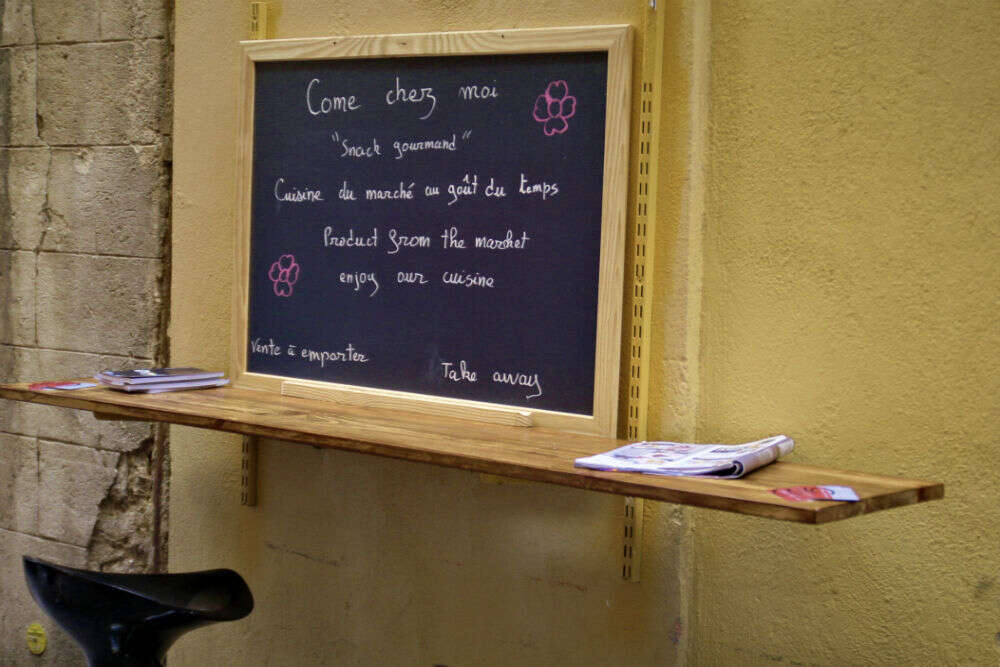 Come chez moi
"Snack gourmand"
Cuisine du marché au goût du temps
Product from the market
enjoy our cuisine
Vente à emporter
Take away